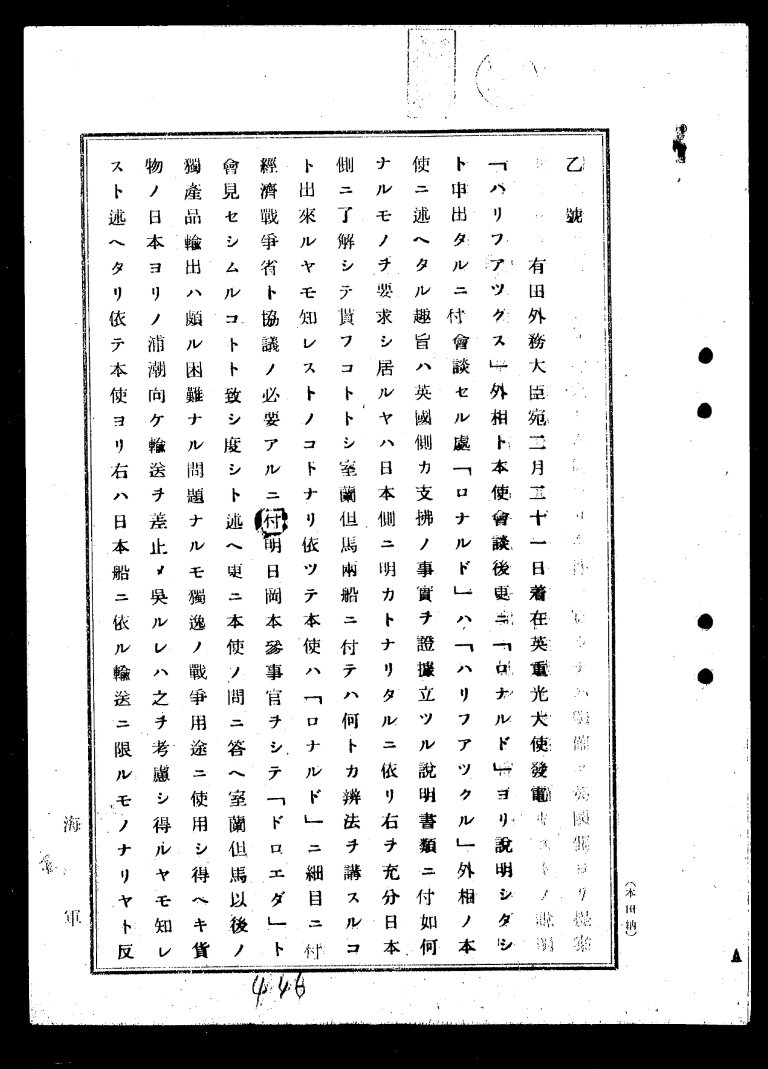 乙號
有田外務大臣宛二月二十一日着在英重光大使發電
「ハリフアツクス」外相ト本使會談後更ニ「ロナルド」ヨリ說明シタシ
ト申出タルニ付會談セル處「ロナルド」ハ「ハリフアツクル」外相ノ本
使ニ述ヘタル趣旨ハ英國側カ支拂ノ事實ヲ證據立ツル說明書類ニ付如何
ナルモノヲ要求シ居ルヤハ日本側ニ明カトナリタルニ依リ右ヲ充分日本
側ニ了解シテ貰フコトトシ室蘭但馬兩船ニ付テハ何トカ辨法ヲ講スルコ
ト出來ルヤモ知レストノコトナリ依ツテ本使ハ「ロナルド」ニ細目ニ付
經濟戰爭省ト協議ノ必要アルニ付明日岡本參事官ヲシテ「ドロエダ」ト
會見セシムルコトト致シ度シト述ヘ更ニ本使ノ問ニ答ヘ室蘭但馬以後ノ
獨產品輸出ハ頗ル困難ナル問題ナルモ獨逸ノ戰爭用途ニ使用シ得ヘキ貨
物ノ日本ヨリノ浦潮向ケ輸送ヲ差止メ吳ルレハ之ヲ考慮シ得ルヤモ知レ
スト述ヘタリ依テ本使ヨリ右ハ日本船ニ依ル輸送ニ限ルモノナリヤト反
海軍
446
A